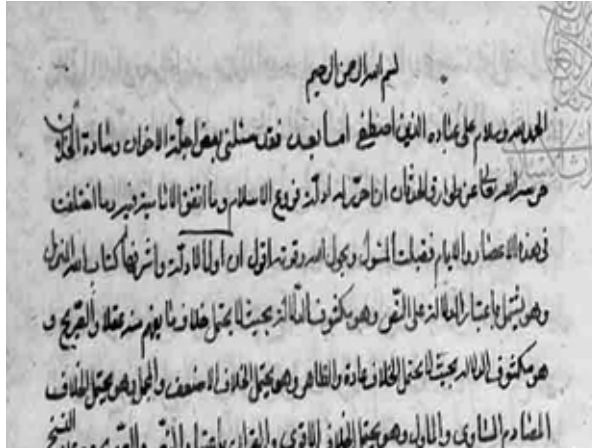 بسم الله الرحمن الرحيم
الحمد لله وسلام على عباده الذين اصطفى اما بعد فقد سئلنى بعض اجلة الاخوان وسادة الخلان
حرسه الله تعالى عن طوارق الحدثان ان احرر له ادلة فروع الاسلام وما اتفق الناس فيه وما اختلفت
فى هذه الاعصار والايام فقبلت المسئول وبحول الله وقوته اقول ان اول الادلة واشرفها كتاب الله المنزل
وهو يشتمل باعتبار الدلالة على النص وهو مكشوف الدلالة بحيث لا يحتمل خلاف ما يفهم منه عقلا والصريح و
هو مكشوف الدلالة بحيث لا يحتمل الخلاف عادة والظاهر وهو يحتمل الخلاف الاضعف والمجمل وهو يحتمل الخلاف
المساوى والماول وهو يحتمل الخلاف الاقوى